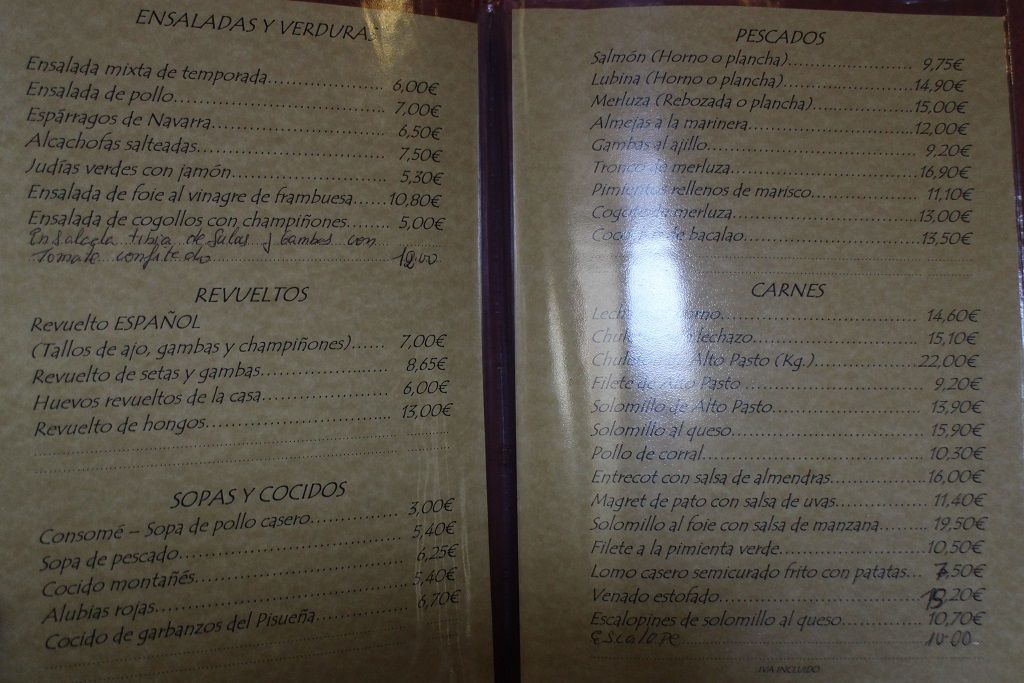 ENSALADAS Y VERDURAS
Ensalada mixta de temporada.................... 6,00€
Ensalada de pollo.................... 7,00€
Espárragos de Navarra.................... 6,50€
Alcachofas salteadas.................... 7,50€
Judías verdes con jamón.................... 5,30€
Ensalada de foie al vinagre de frambuesa......10,80€
Ensalada de cogollos con champiñones.......... 5,00€
Ensalada tibia de Setas y Gambas con
Tomate confitado.................... 12.00
REVUELTOS
Revuelto ESPAÑOL
(Tallos de ajo, gambas y champiñones)...... 7,00€
Revuelto de setas y gambas.................... 8,65€
Huevos revueltos de la casa.................... 6,00€
Revuelto de hongos.................... 13,00€
SOPAS Y COCIDOS
Consomé – Sopa de pollo casero.................... 3,00€
Sopa de pescado.................... 5,40€
Cocido montañés.................... 6,25€
Alubias rojas.................... 5,40€
Cocido de garbanzos del Pisueña.................... 6,70€
PESCADOS
Salmón (Horno o plancha).................... 9,75€
Lubina (Horno o plancha)....................14,90€
Merluza (Rebozada o plancha)....................15,00€
Almejas a la marinera....................12,00€
Gambas al ajillo.................... 9,20€
Tronco de merluza....................16,90€
Pimientos rellenos de marisco.................... 11,10€
Cogote de merluza....................13,00€
de bacalao....................13,50€
CARNES
.................... 14,60€
lechazo.................... 15,10€
Chuletón de Alto Pasto (Kg.)....................22,00€
Filete de Alto Pasto .................... 9,20€
Solomillo de Alto Pasto.................... 13,90€
Solomillo al queso.................... 15,90€
Pollo de corral.................... 10,30€
Entrecot con salsa de almendras....................16,00€
Magret de pato con salsa de uvas.................... 11,40€
Solomillo al foie con salsa de manzana.......... 19,50€
Filete a la pimienta verde....................10,50€
Lomo casero semicurado frito con patatas... 7,50€
Venado estofado.................... ,20€
Escalopines de solomillo al queso....................10,70€
Escalope 10.00
IVA INCLUIDO